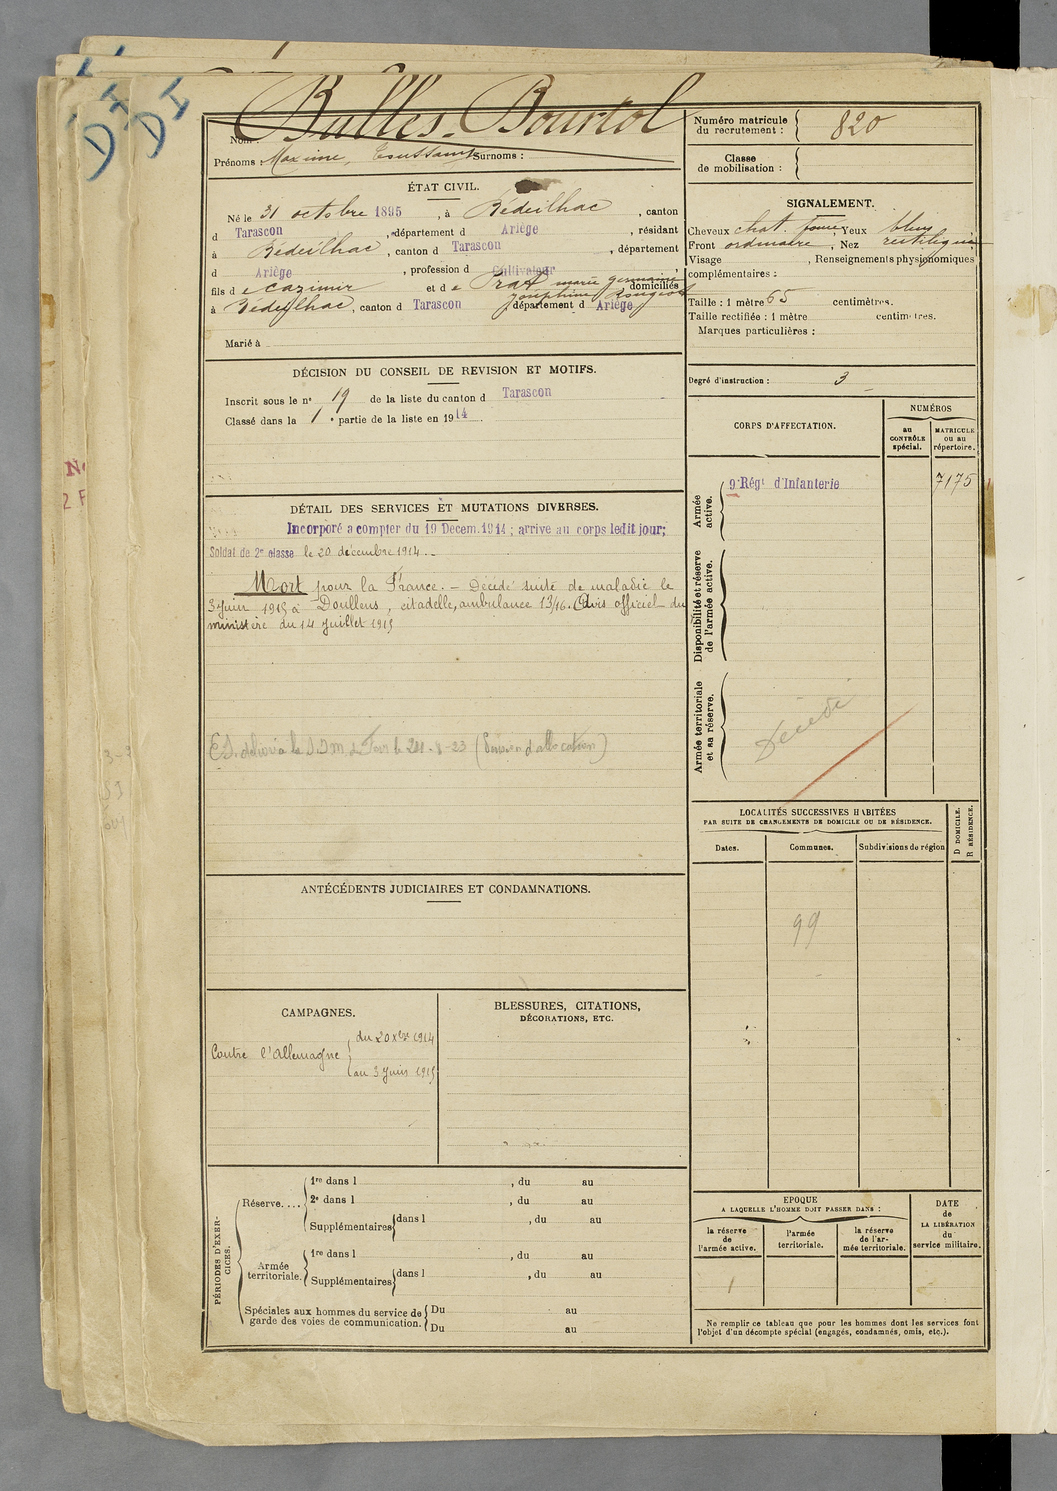 DI
DI
Balles-Bourtol
Nom :
Prénoms : Maxime, Toussaint Surnoms :
Numéro matricule du recrutement : 820
Classe de mobilisation :
ÉTAT CIVIL.
Né le 31 octobre 1895, à Bédeilhac, canton
d Tarascon, département d Ariège, résidant
à Bédeilhac, canton d Tarascon, département
d Ariège, profession d Cultivateur
fils de Cazimir et de Prat marie germaine domiciliés
joséphine Rougeot
à Bédeilhac, canton d Tarascon, département d Ariège
Marié à
SIGNALEMENT.
Cheveux chat. foncé Yeux bleus
Front ordinaire, Nez rectiligne
Visage , Renseignements physionomiques
complémentaires :
Taille : 1 mètre 65 centimètres.
Taille rectifiée : 1 mètre centimètres.
Marques particulières :
Degré d'instruction : 3
DÉCISION DU CONSEIL DE REVISION ET MOTIFS.
Inscrit sous le n° 19 de la liste du canton d Tarascon
Classé dans la 1e partie de la liste en 1914.
DÉTAIL DES SERVICES ET MUTATIONS DIVERSES.
Incorporé a compter du 19 Décem. 1914 ; arrive au corps ledit jour;
Soldat de 2e classe le 20 décembre 1914.
Mort pour la France. — Décédé suite de maladie le
3 Juin 1915 à Doullens, citadelle, ambulance 13/16. (Avis officiel du
ministère du 14 Juillet 1915
CORPS D'AFFECTATION.
NUMÉROS
au CONTRÔLE spécial.
MATRICULE ou au répertoire.
Armée active.
9e Régt d'Infanterie 7175
Disponibilité et réserve de l'armée active.
Armée territoriale et sa réserve.
Décédé
LOCALITÉS SUCCESSIVES HABITÉES
PAR SUITE DE CHANGEMENTS DE DOMICILE OU DE RÉSIDENCE.
Dates.
Communes.
Subdivisions de région
D DOMICILE.
R RÉSIDENCE.
99
ANTÉCÉDENTS JUDICIAIRES ET CONDAMNATIONS.
CAMPAGNES.
Contre l'Allemagne
du 20 Xbre 1914
au 3 Juin 1915
BLESSURES, CITATIONS,
DÉCORATIONS, ETC.
PÉRIODES D'EXERCICES.
Réserve....
1re dans l , du au
2e dans l , du au
Supplémentaires dans l , du au
Armée territoriale.
1re dans l , du au
Supplémentaires dans l , du au
Spéciales aux hommes du service de garde des voies de communication.
Du au
Du au
EPOQUE
A LAQUELLE L'HOMME DOIT PASSER DANS :
la réserve de l'armée active.
l'armée territoriale.
la réserve de l'armée territoriale.
DATE de LA LIBÉRATION du service militaire.
1
Ne remplir ce tableau que pour les hommes dont les services font
l'objet d'un décompte spécial (engagés, condamnés, omis, etc.).